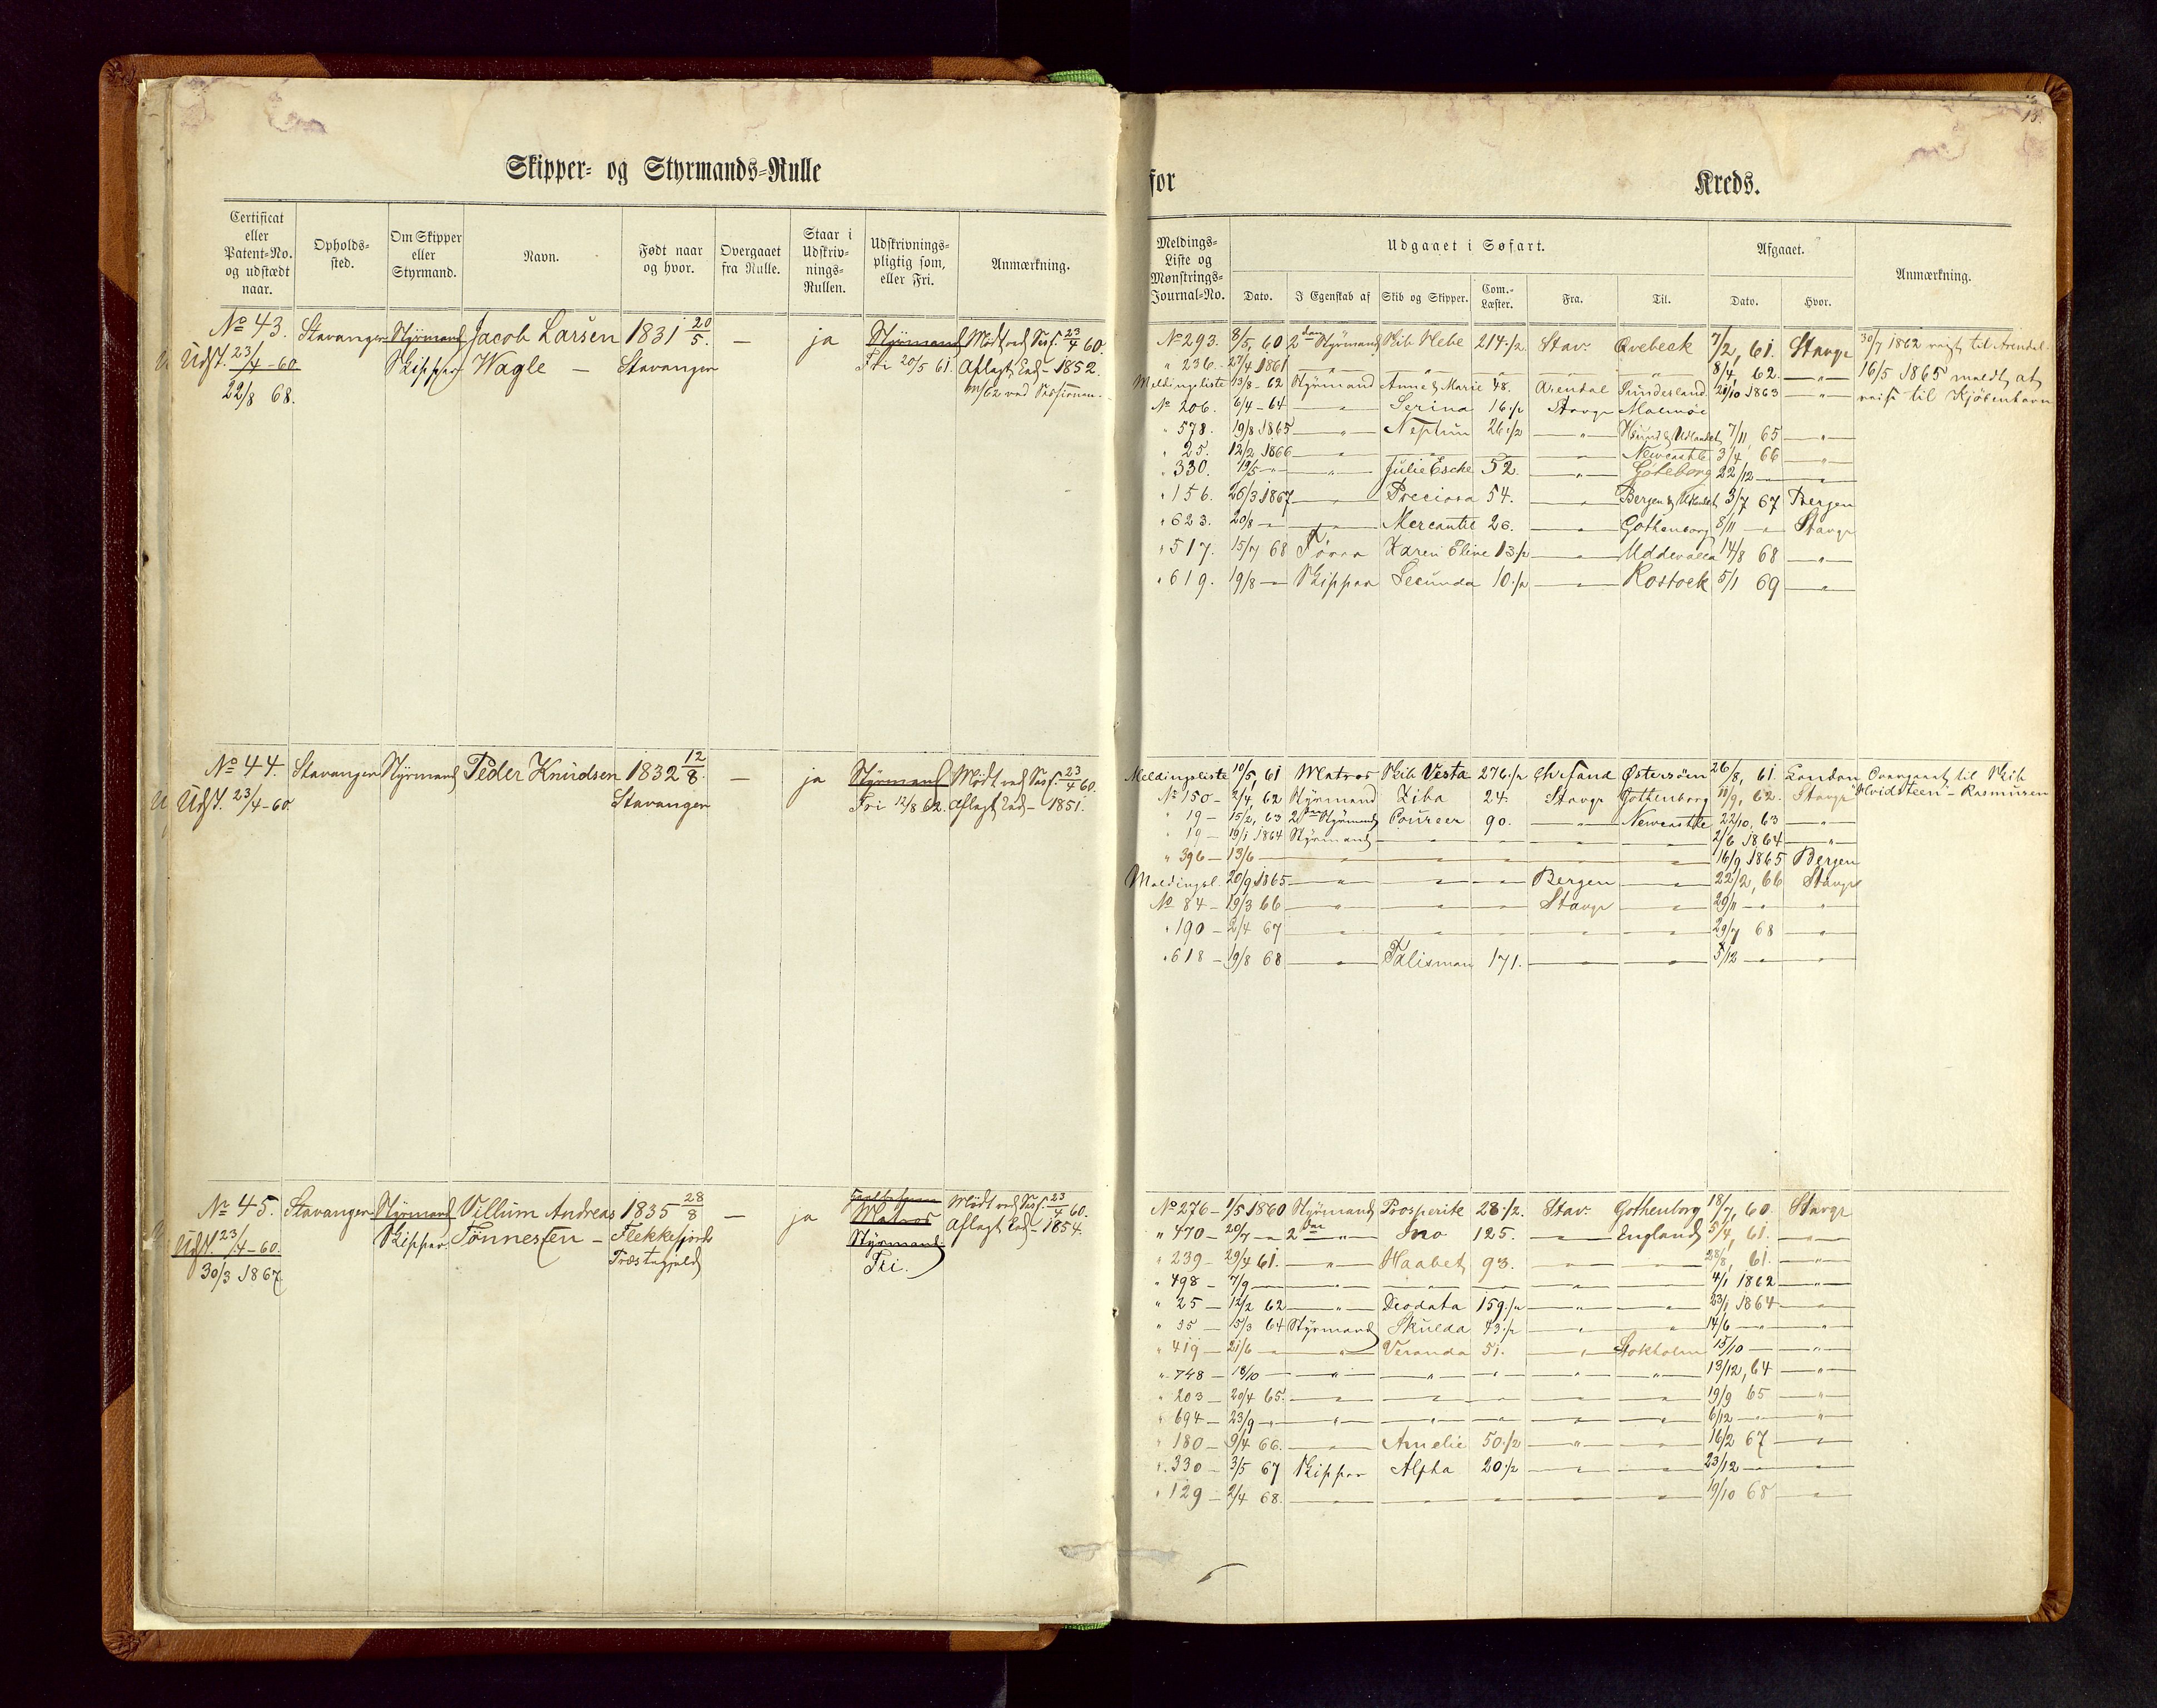 15.
Skipper- og Styrmands-Rulle
for Kreds.
Certificat eller Patent-No. og udstædt naar.
Opholds-sted.
Om Skipper eller Styrmand.
Navn.
Født naar og hvor.
Overgaaet fra Rulle.
Staar i Udskriv-nings-Rullen.
Udskrivnings-pligtig som, eller Fri.
Anmærkning.
Meldings-Liste og Mønstrings-Journal-No.
Udgaaet i Søfart.
Dato. I Egenskab af Skib og Skipper. Com.-Læster. Fra. Til.
Afgaaet.
Dato. Hvor.
Anmærkning.
No 43. Stavanger Styrmand Jacob Larsen 1831 20/5. — ja Styrmand Mødt ved Sess. 23/4 60.
Udst. 23/4-60 Skipper Wagle — Stavanger Fri 20/5 61. Aflagt Eed — 1852.
22/8 68.
No 293. 8/5, 60 2den Styrmand Skib Hebe 214 1/2 Stav. Qvebeck 7/2, 61. Stavgr 30/7 1862 reist til Arendal.
" 236. 27/4 1861 — " — " — " — " — " 8/4 62. — " — 16/5 1865 meldt at
Meldingsliste 13/8 - 62 Styrmand Anne & Marie 48. Arendal Sunderland 21/10 1863 — " — reise til Kjöbenhavn
No 206. 6/4 - 64 — " — Serina 16 1/2 Stavgr Malmöe
" 578. 19/8 1865 — " — Neptun 26 1/2 — " — Udlandet 7/11 65 — " —
" 25. 12/2 1866 — " — " — " — Newcastle 3/4 66 — " —
" 330. 19/5 — " — " — Julie Esche 52 — " — Göteborg 22/12 — " —
" 156. 26/3 1867 — " — Preciosa 54. — " — Bergen & Udlandet 3/7 67 Bergen
" 623. 20/8 — " — " — Mercantil 26. — " — Gothenborg 8/11 — " — Stavgr
" 517. 15/7 68 Karen Eline 13 1/2 — " — Uddevalla 14/8 68 — " —
" 619. 19/8 — Skipper Secunda 10 1/2 — " — Rostock 5/1 69 — " —
No 44. Stavanger Styrmand Peder Knudsen 1832 12/8. — ja Styrmand Mødt ved Sess. 23/4 60.
Udst. 23/4-60. Stavanger Fri 12/8 62. Aflagt Eed — 1851.
Meldingsliste 10/5, 61 Matros Skib Vesta 276 1/2 Chrsand Østersøen 26/8, 61. London Overgaaet til Skib
No 150 - 2/4, 62 Styrmand Ziba 24. Stavgr Gothenborg 10/9, 62. Stavgr "Hvidsteen" - Rasmusen
" 19 - 15/2, 63 2den Styrmand Coureer 90. — " — Newcastle 22/10, 63 — " —
" 19 - 19/1 1864 Styrmand — " — " — " — " — 2/6 1864 — " —
" 396 - 13/6 — " — " — " — " — " — 16/9 1865 Bergen
Meldingsl. 20/9 1865 — " — " — " — Bergen — " — 22/2, 66 Stavgr
No 84 - 19/3 66 — " — " — " — Stavgr — " — 29/11 — " — "
" 190 - 2/4 67 — " — " — " — " — " — 29/7 68 — " —
" 618 - 19/8 68 — " — Talisman 171. — " — " — 5/12 — " — " —
No 45. Stavanger Styrmand Villum Andreas 1835 28/8 — ja Matros Mødt ved Sess. 23/4 60.
Udst. 23/4-60. Skipper. Tönnesen — Flekkefjords Styrmand. Aflagt Eed — 1854.
30/3 1867 Præstegjeld Fri.
No 276 - 1/5 1860 Styrmand Prosperite 28 1/2. Stav. Gothenborg 18/7, 60 Stavgr
" 470 - 20/7 — " 2den — " — Ino 125. — " — England 5/4, 61. — " —
" 239 - 29/4 61. — " — Haabet 93. — " — " — 28/8, 61. — " —
" 498 - 7/9 — " — " — " — " — " — 4/1 1862 — " —
" 25 - 12/2 62 — " — Deodata 159 1/2 — " — " — 23/1 1864 — " —
" 35 - 15/3 64 Styrmand Skulda 43 1/2 — " — " — 14/6 — " — " —
" 419 - 21/6 — " — " — Veranda 51. — " — Stokholm 15/10 — " — " —
" 748 - 18/10 — " — " — " — " — " — 13/12, 64 — " —
" 203 - 20/4 65. — " — " — " — " — " — 19/9 65 — " —
" 694 - 23/9 — " — " — " — " — " — 6/12 — " — " —
" 180 - 9/4 66. — " — Amelie 50 1/2 — " — " — 16/2 67 — " —
" 330 - 3/5 67 Skipper Alpha 20 1/2 — " — " — 23/12 — " — " —
" 129 - 2/4 68. — " — " — " — " — " — 19/10 68 — " —